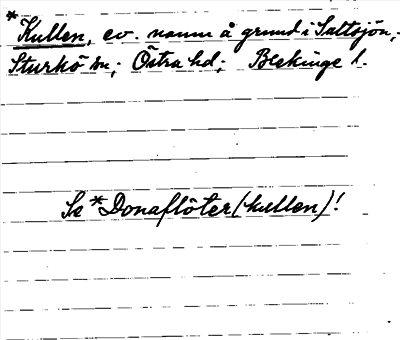 *Kullen, ev. namn å grund i Saltsjön,
Sturkö sn; Östra hd; Blekinge l.
Se *Donaflöter(kullen)!